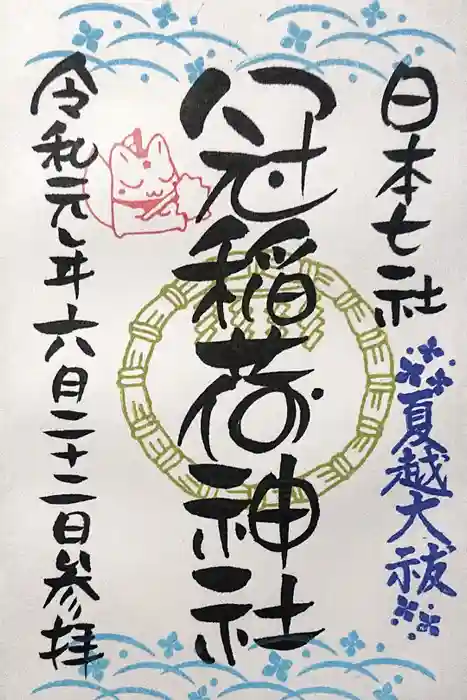 日本七社
夏越大祓
冠稲荷神社
令和元年六月二十二日参拝